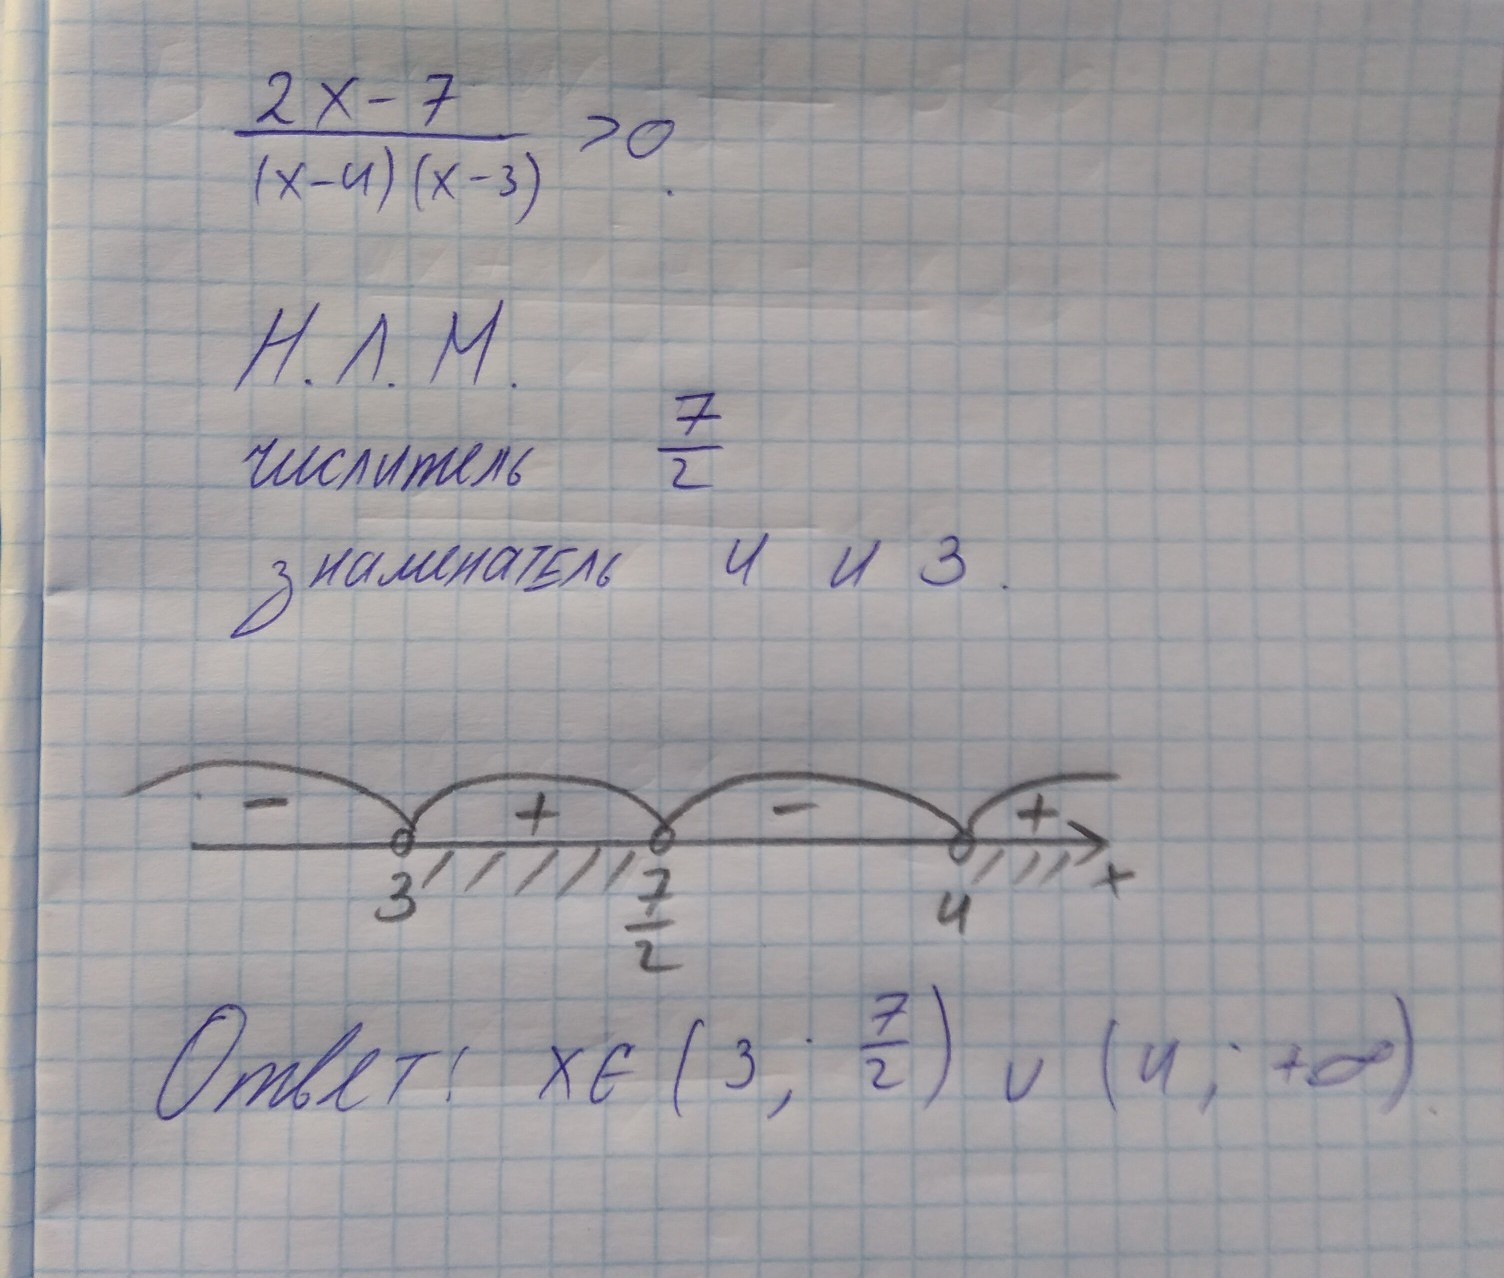 2x-7
(x-4)(x-3) >0.
Н.Л.М.
числитель 7/2
знаменатель 4 и 3.
- + - +
3 7/2 4 x
Ответ: x∈(3; 7/2) ∪ (4; +∞).